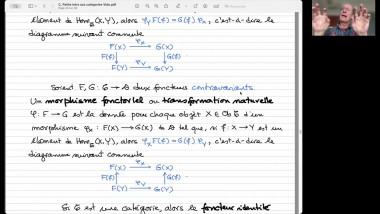 élément de Hom𝒞(X,Y), alors φ_Y F(f) = G(f) φ_X, c'est-à-dire le
diagramme suivant commute
F(X) —φ_X→ G(X)
F(f) ↓ ↓ G(f)
F(Y) —φ_Y→ G(Y)
Soient F, G : 𝒞 → 𝒟 deux foncteurs contravariants.
Un morphisme fonctoriel ou transformation naturelle
φ : F → G est la donnée pour chaque objet X ∈ Ob 𝒞 d'un
morphisme φ_X : F(X) → G(X) tel que, si f : X → Y est un
élément de Hom𝒞(X,Y), alors φ_X F(f) = G(f) φ_Y, c'est-à-dire le
diagramme suivant commute
F(X) —φ_X→ G(X)
F(f) ↑ ↑ G(f)
F(Y) —φ_Y→ G(Y)
Si 𝒞 est une catégorie, alors le foncteur identité